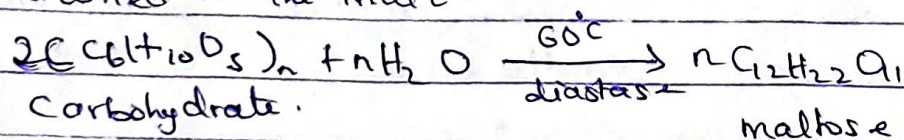 2(C6H10O5)n + nH2O 60°C diastase → nC12H22O11
Carbohydrate. maltose